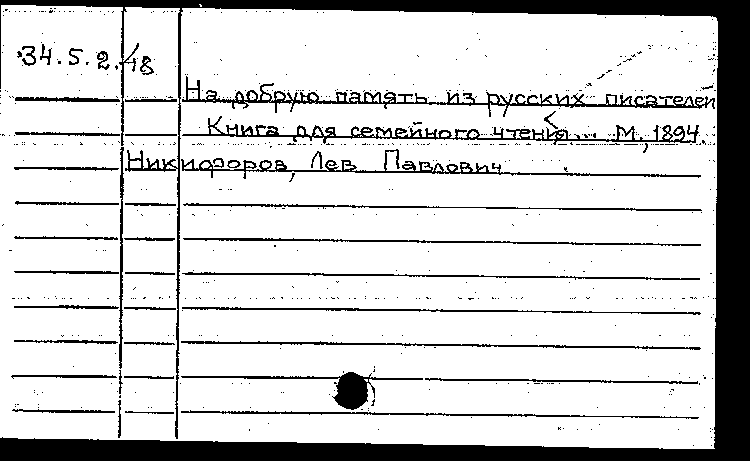 34.5.2./48
На добрую память из русских писателей
Книга для семейного чтения... М., 1894.
Никифоров, Лев Павлович